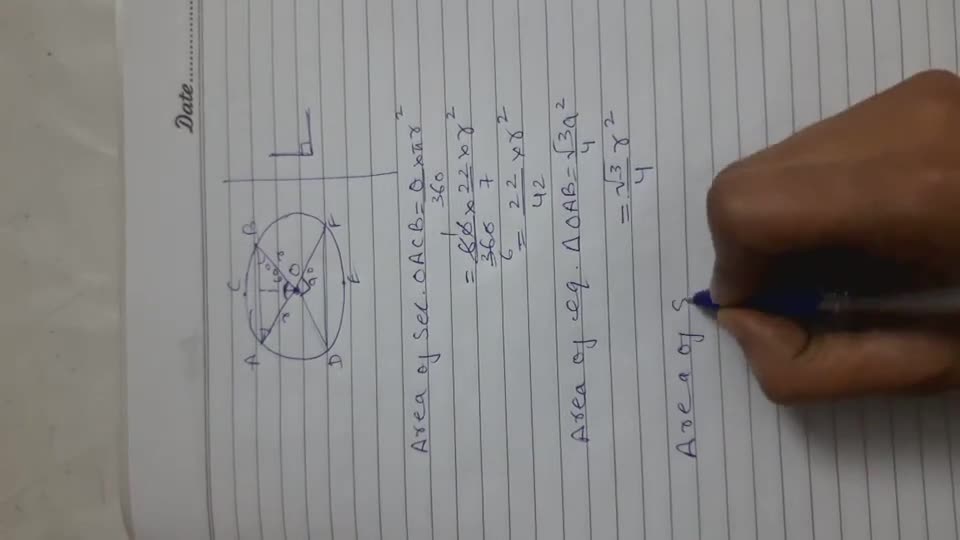 Date..........
C
A
B
r
r
60
60
O
90
D
F
E
Area of Sec. OACB = θ/360 × πr²
= 60/360 × 22/7 × r²
1
6
= 22/42 × r²
Area of eq. ΔOAB = √3a²/4
= √3/4 r²
Area of S